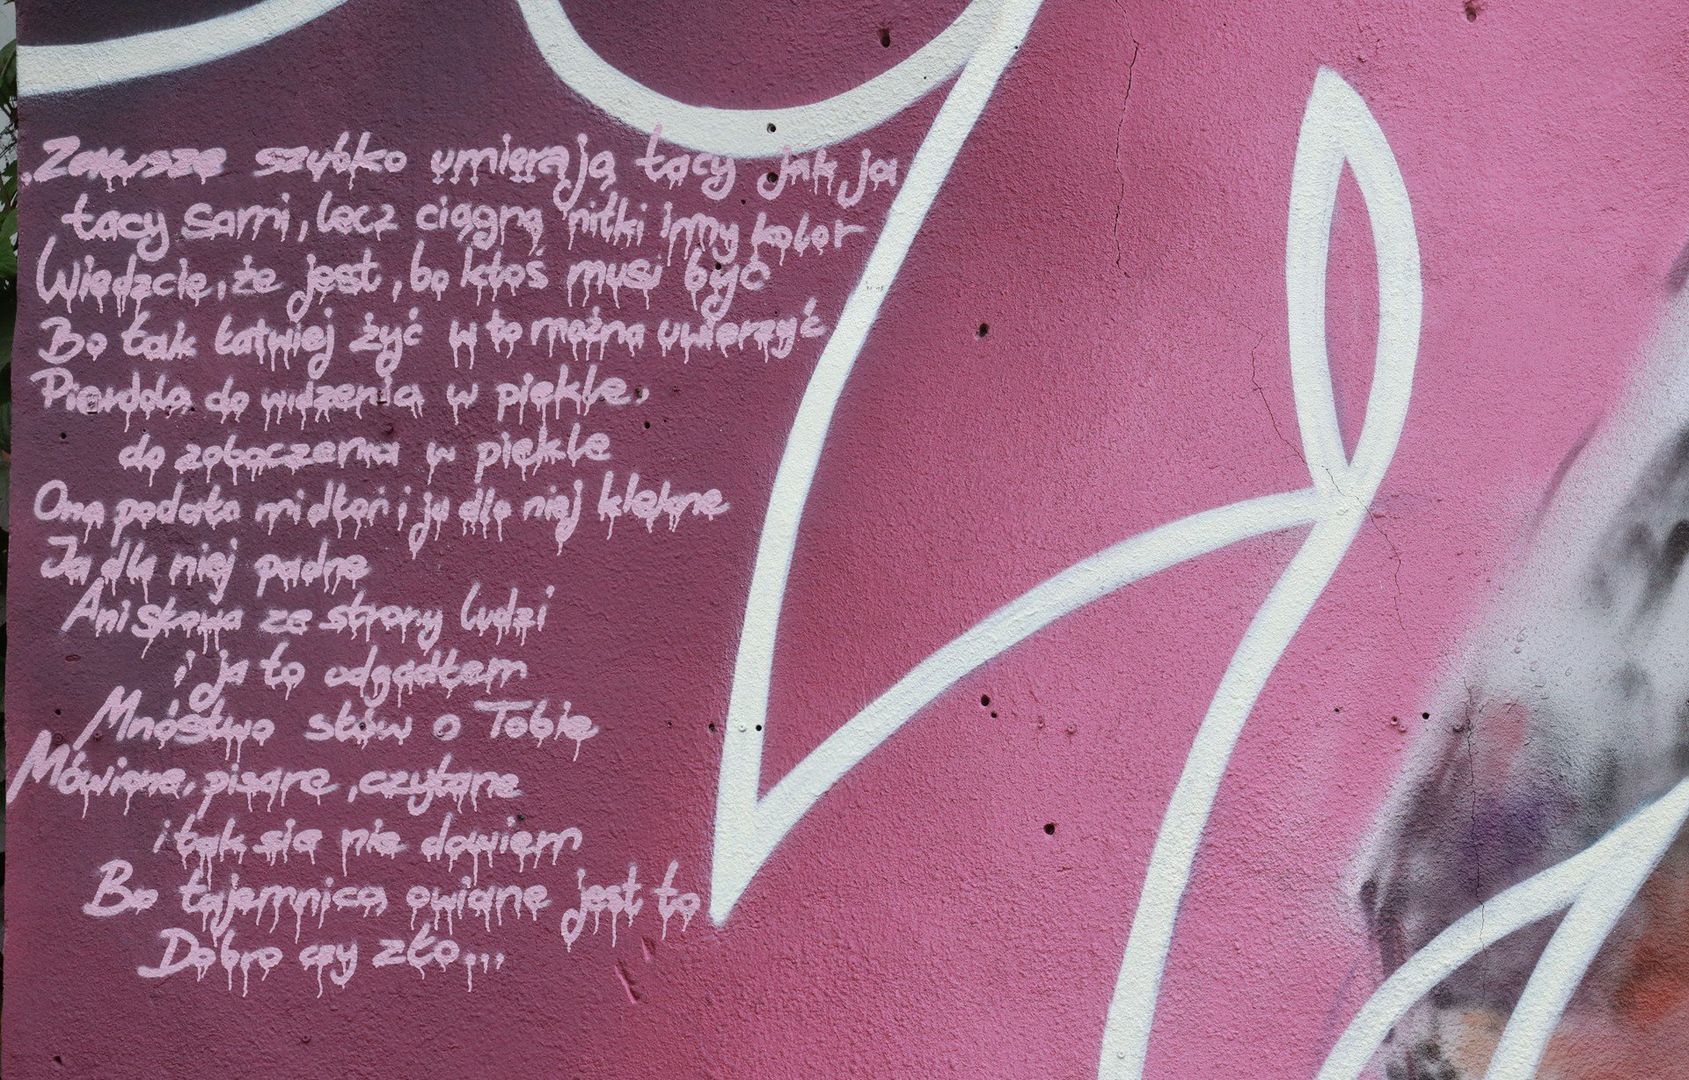 Zawsze szybko umierają tacy jak ja
tacy sami, lecz ciągną nitki inny kolor
Wiedzcie, że jest, bo ktoś musi być
Bo tak łatwiej żyć w to można uwierzyć
Pierdolą do widzenia w piekle,
do zobaczenia w piekle
Ona podała mi dłoń i ja dla niej klęknę
Ja dla niej padnę
Ani słowa ze strony ludzi
i ja to odgadłem
Mnóstwo słów o Tobie
Mówione, pisane, czytane
i tak się nie dowiem
Bo tajemnicą owiane jest to
Dobro czy zło...